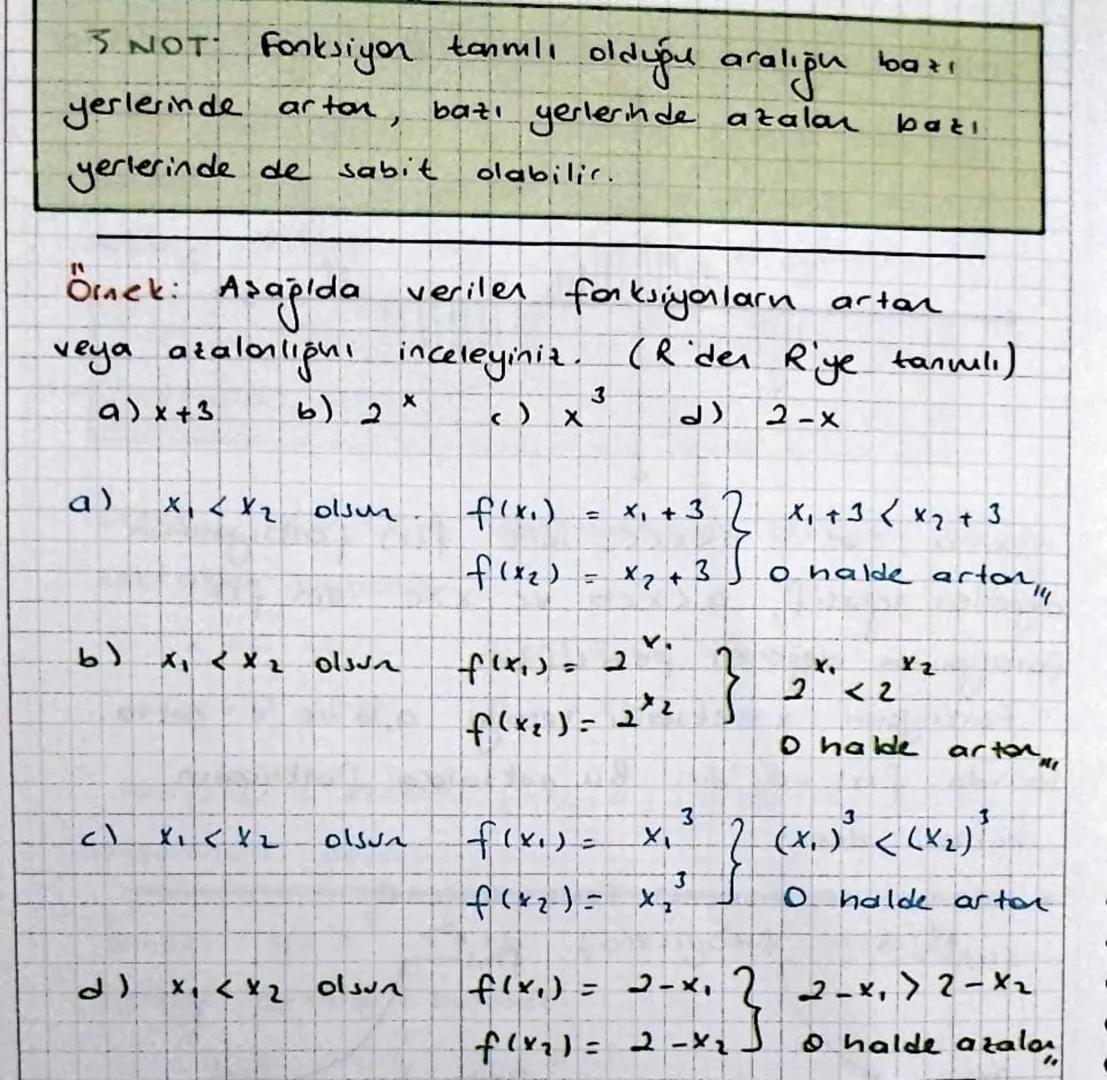 NOT: Fonksiyon tanımlı olduğu aralığın bazı
yerlerinde artan, bazı yerlerinde azalan bazı
yerlerinde de sabit olabilir.
Örnek: Aşağıda verilen fonksiyonların artan
veya azalanlığını inceleyiniz. (R'den R'ye tanımlı)
a) x+3 b) 2^x c) x^3 d) 2-x
a) x₁ < x₂ olsun. f(x₁) = x₁ + 3 } x₁ + 3 < x₂ + 3
f(x₂) = x₂ + 3 } o halde artan
b) x₁ < x₂ olsun f(x₁) = 2^x₁ } 2^x₁ < 2^x₂
f(x₂) = 2^x₂ } O halde artan
c) x₁ < x₂ olsun f(x₁) = x₁³ } (x₁)³ < (x₂)³
f(x₂) = x₂³ } O halde artan
d) x₁ < x₂ olsun f(x₁) = 2-x₁ } 2-x₁ > 2-x₂
f(x₂) = 2-x₂ } o halde azalan